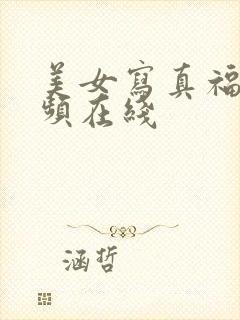 美女寫真福
頻在綫
涵哲